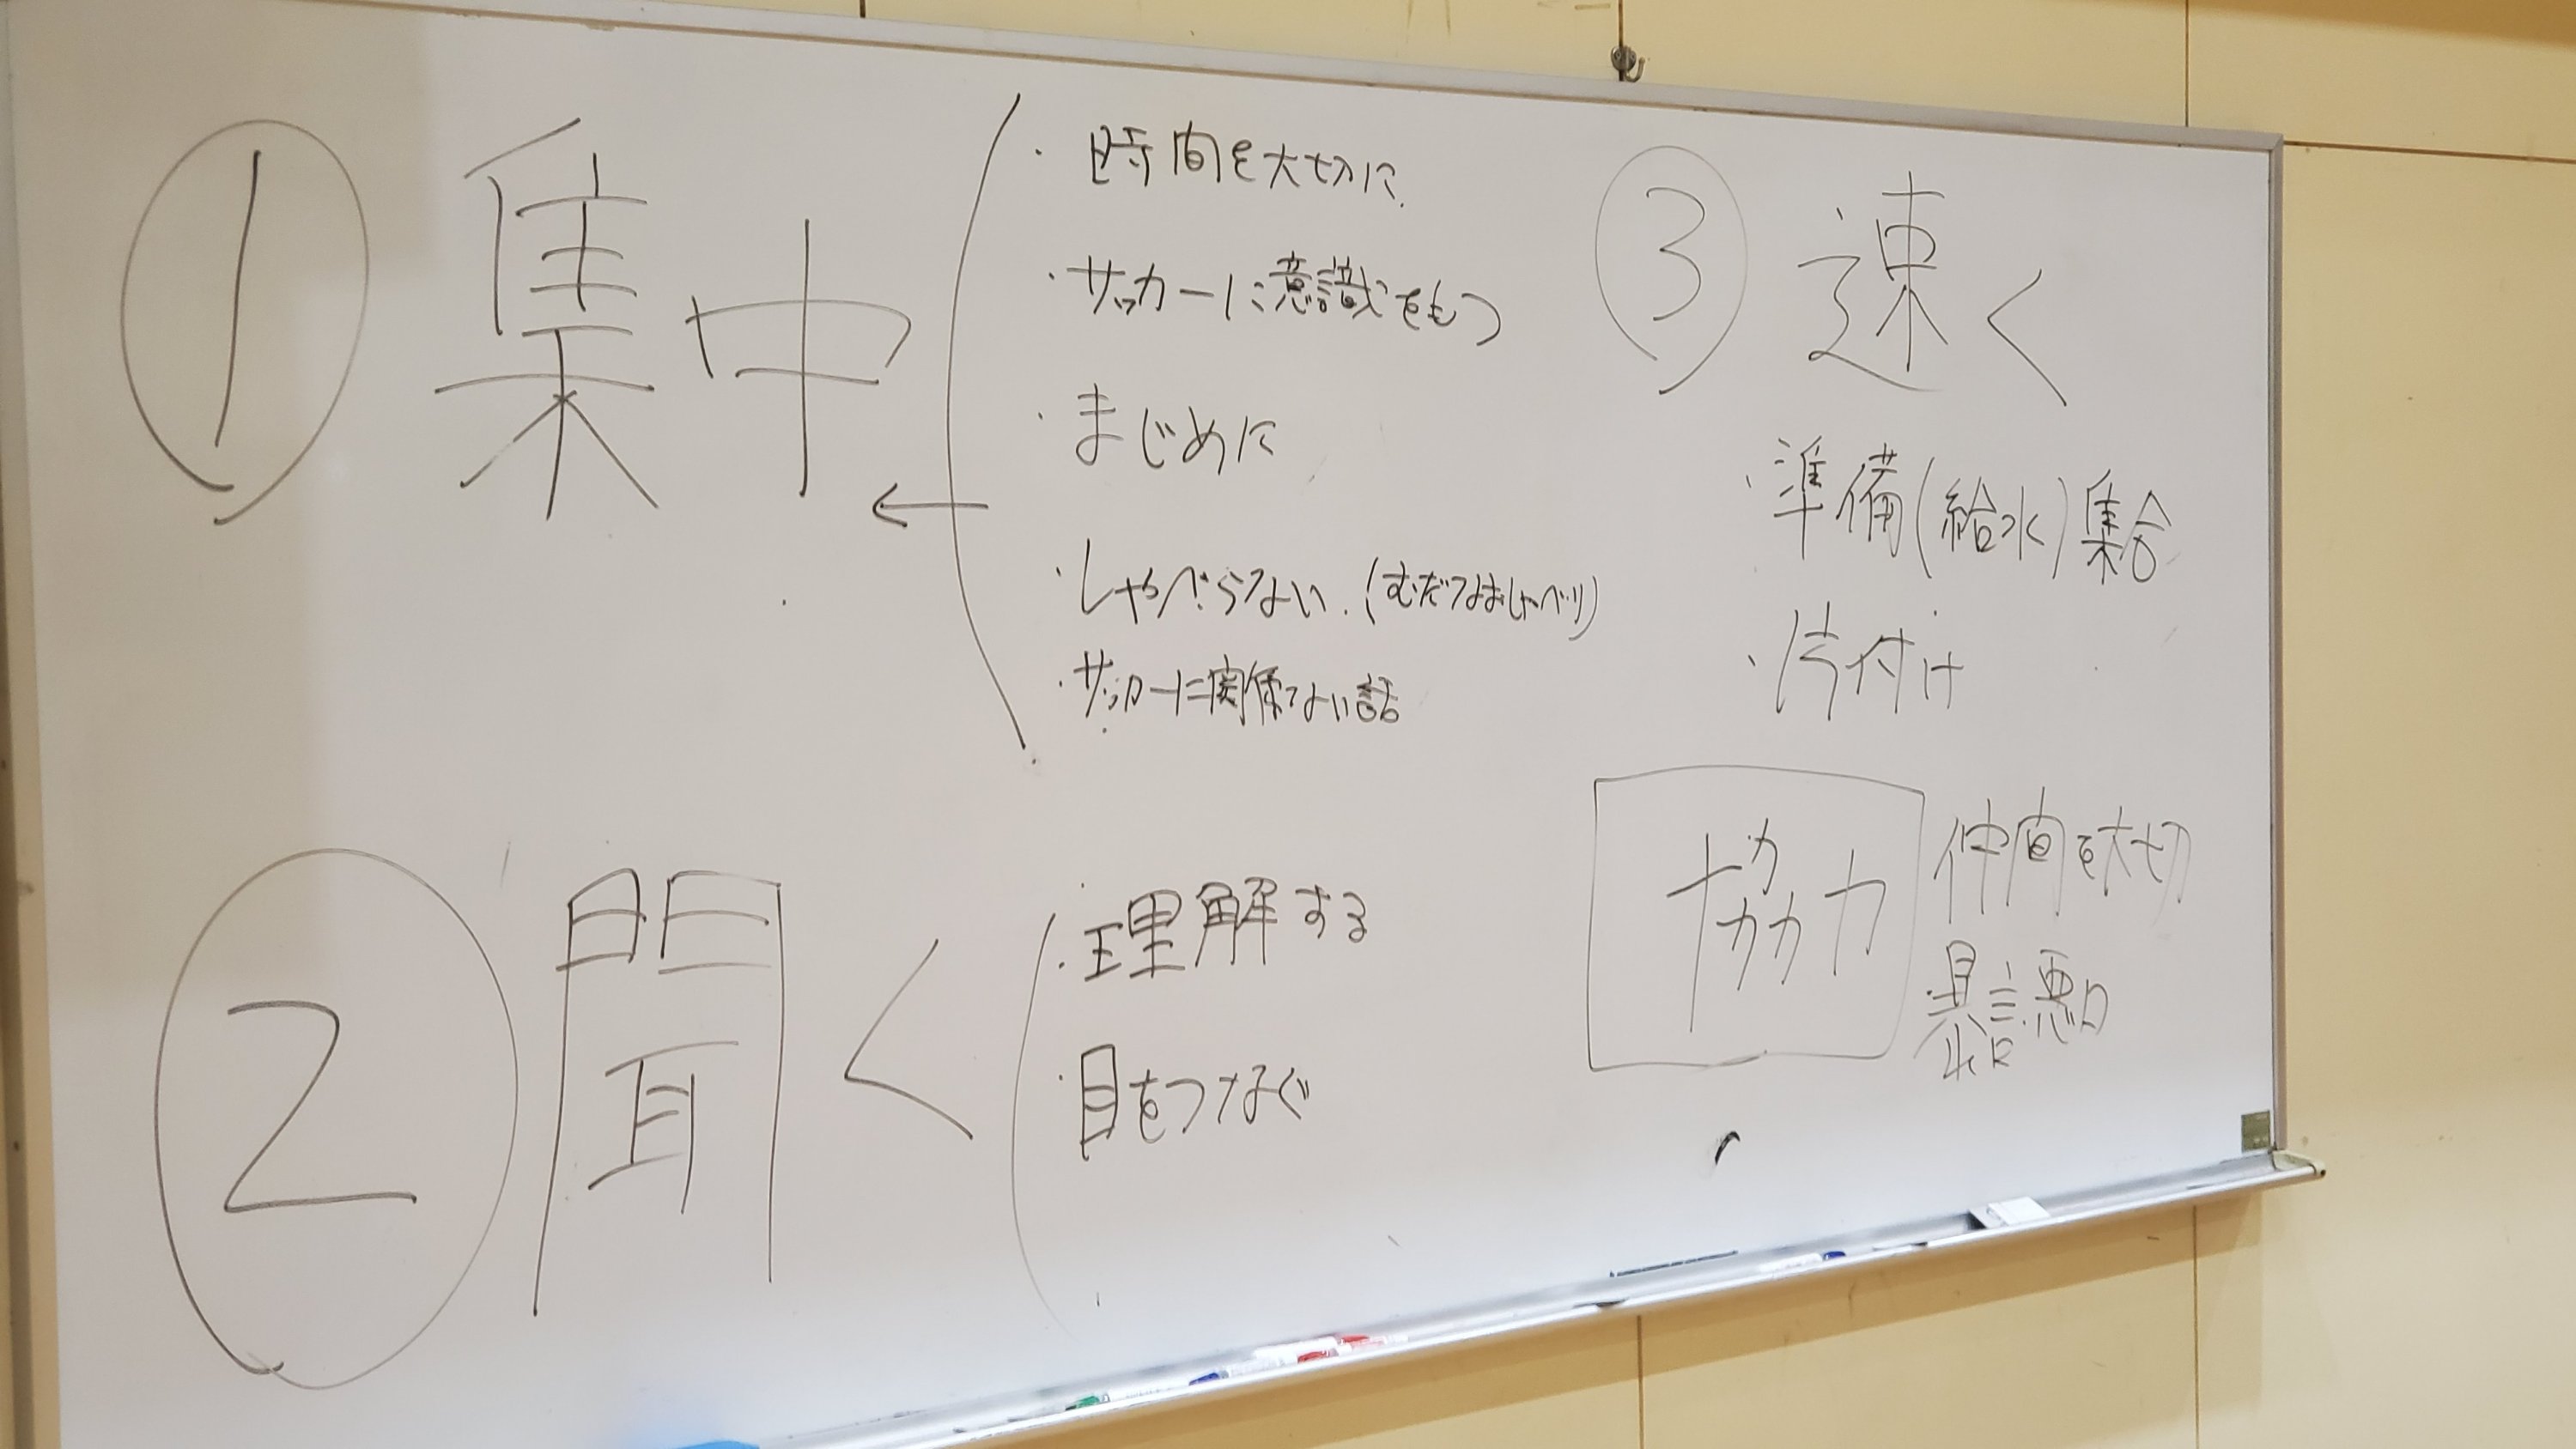 ① 集中
・時間を大切に
・サッカーに意識をもつ
・まじめに
←
・しゃべらない.(むだなおしゃべり)
・サッカーに関係ない話
② 聞く
・理解する
・目をつなぐ
③ 速く
・準備(給水)集合
・片付け
協力
仲間を大切
・暴言悪口